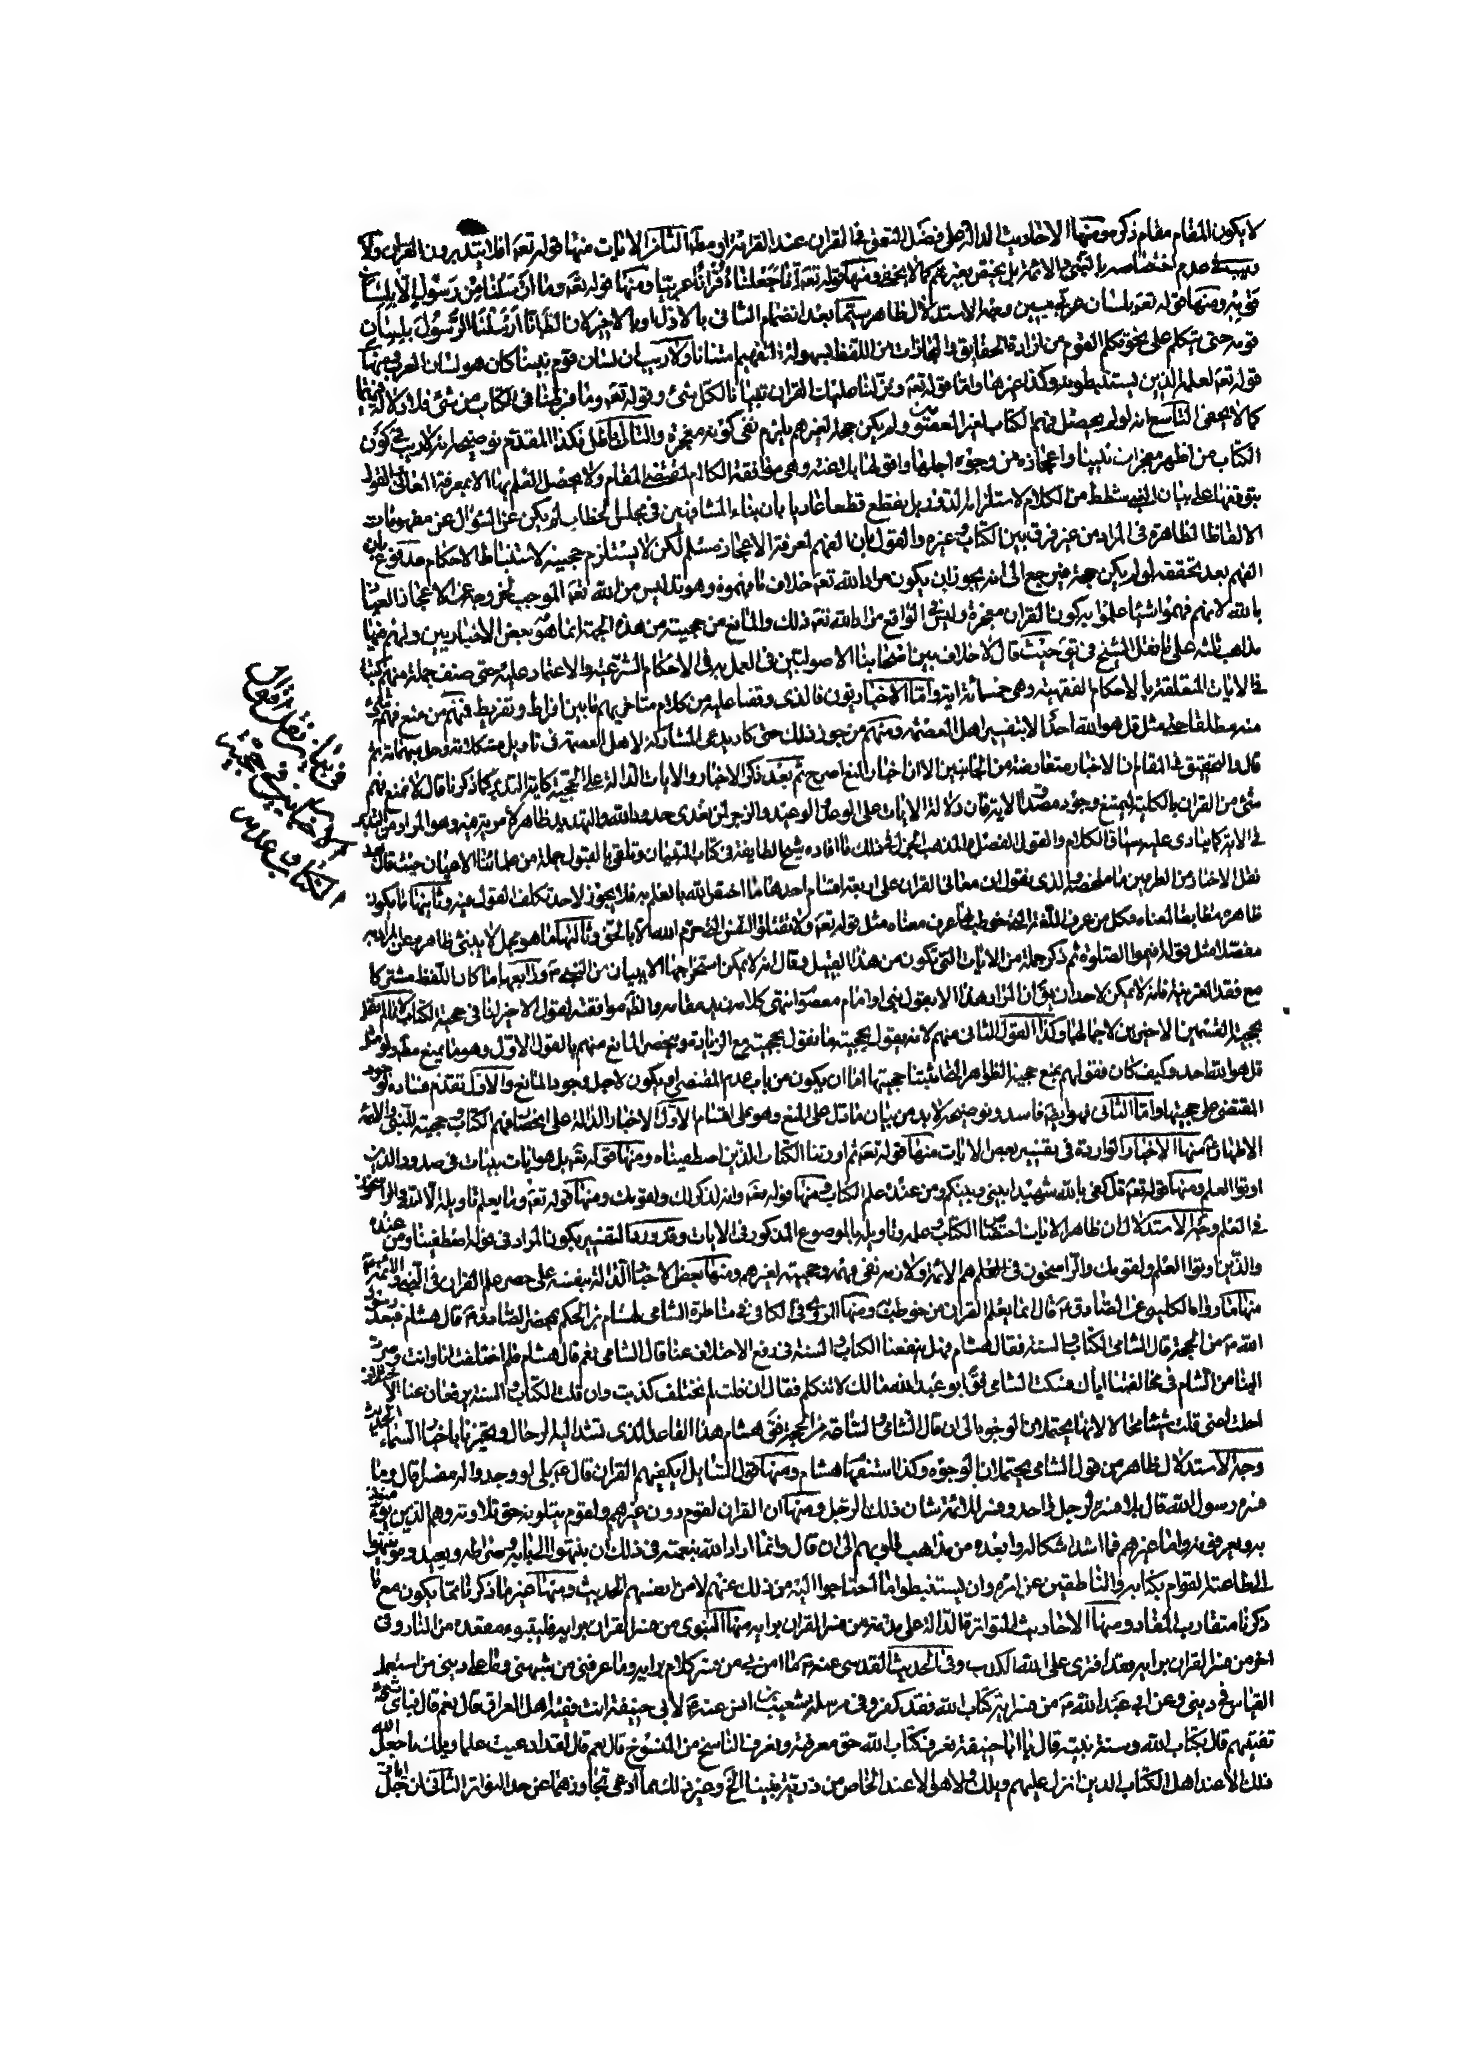 لا يكون المقام مقام ذكره ومنها الاحاديث الدالة على فضل التعمق في القران عند القرائة او مطلقا الثامن الايات منها قوله تعه افلا يتدبرون القران ولا
ريب في عدم اختصاصه بالنبي والائمة بل يختص بغيرهم كما لا يخفى ومنها قوله تعه انا جعلناه قرانا عربيا ومنها قوله تعه وما ارسلنا من رسول الا بلسان
قومه ومنها قوله تعه بلسان عربي مبين وجه الاستدلال ظاهر سيما بعد انضمام الثاني بالاول او بالاخير لان الظ انا ارسلنا الرسول بلسان
قومه حتى يتكلم على نحو تكلم القوم من ارادة الحقايق والمجازات من اللفظ لسهولة التفهيم امتنانا ولا ريب ان لسان قوم نبينا كان هو لسان العرب ومنها
قوله تعه لعلمه الذين يستنبطونه وكذا غيرها واما قوله تعه ونزلنا عليك القران تبيانا لكل شئ وقوله تعه وما فرطنا في الكتاب من شئ فلا دلالة فيهما
كما لا يخفى التاسع انه لو لم يحصل فهم الكتاب لغير المعصومين ولم يكن حجة لغيرهم يلزم نفي كونه معجزة والتالي باطل فكذا المقدم توضيحه انه لا ريب في كون
الكتاب من اظهر معجزات نبينا واعجازه من وجوه اجلها واقواها بلاغته وهي موافقة الكلام لمقتضى المقام ولا يحصل العلم بها الا بمعرفة المعاني والقول
بتوقفها على بيان شطط من الكلام لاستلزامه الدور بل يقطع قطعا عاديا بان بناء المشافهين في مجلس الخطاب لم يكن عن السؤال عن مفهومات
الالفاظ الظاهرة في المراد من غير فرق بين الكتاب وغيره والقول بان الفهم لمعرفة الاعجاز مسلم لكن لا يستلزم حجيته لاستنباط الاحكام مدفوع بان
الفهم بعد تحققه لو لم يكن حجة فيرجع الى انه يجوز ان يكون مراد الله تعه خلاف ما فهموه وهو تدليس من الله تعه الموجب لخروجه عن الاعجاز العياذ
بالله لانهم فهموا شيئا علموا به كون القران معجزة وليس في الواقع مراد الله تعه ذلك والمانع من حجيته من هذه الجهة انما هو بعض الاخباريين ولهم فيها
مذاهب ثلثة على ما نقل الشيخ في يق حيث قال لا خلاف بين اصحابنا الاصوليين في العمل به في الاحكام الشرعية والاعتماد عليه حتى صنف جملة منهم كتبا
في الايات المتعلقة بالاحكام الفقهية وهي خمسمائة اية واما الاخباريون فالذي وقفنا عليه من كلام متاخريهم ما بين افراط وتفريط فمنهم من منع فهم شئ
منه مطلقا حتى مثل قل هو الله احد الا بتفسير اهل العصمة ومنهم من جوز ذلك حتى كاد يدعي المشاركة لاهل العصمة في تاويل مشكلاته وحل مبهماته ثم
قال والتحقيق في المقام ان الاخبار متعارضة من الجانبين الا ان اخبار المنع اصرح ثم بعد ذكر الاخبار والايات الدالة على الحجية كاية التدبر كما ذكرنا قال لا فهم
شئ من القران بالكلية ليمتنع وجود مصداق الاية فان دلالة الايات على الوعد والوعيد والزجر لمن تعدى حدود الله والتهديد ظاهر لا مرية فيه وهو المراد من التدبر
في الاية كما ينادي عليه سياق الكلام والقول الفصل والمذهب الجزل في ذلك ما افاده شيخ الطايفة في كتاب التبيان وتلقاه بالقبول جملة من علمائنا الاعيان حيث قال بعد
نقل الاخبار من الطرفين ما ملخصه والذي نقول ان معاني القران على اربعة اقسام احدها ما اختص الله بالعلم به فلا يجوز لاحد تكلف القول فيه وثانيها ما يكون
ظاهره مطابقا لمعناه فكل من عرف اللغة التي خوطب بها عرف معناه مثل قوله تعه ولا تقتلوا النفس التي حرم الله الا بالحق وثالثها ما هو مجمل لا ينبئ ظاهره عن المراد به
مفصلا مثل قوله اقيموا الصلوة ثم ذكر جملة من الايات التي تكون من هذا القبيل وقال انه لا يمكن استخراجها الا ببيان من النبي ص ورابعها ما كان اللفظ مشتركا
مع فقد القرينة فانه لا يمكن لاحد ان يق ان المراد هذا الا بقول نبي او امام معصوم انتهى كلامه والظ موافقته لقول الاخير لنا في حجية الكتاب
بحجية القسمين الاخيرين لاجمالهما وكذا القول الثاني منهم لانه يقول بحجية ما نقول بحجيته مع الزيادة وينحصر المانع منهم بالقول الاول وهو ما يمنع مطه ولو مثل
قل هو الله احد وكيف كان فقولهم بمنع حجية الظواهر التي اثبتنا حجيتها اما ان يكون من باب عدم المقتضى او يكون لاجل وجود المانع والاول تقدم فساده لوجود
المقتضى على حجيتها واما الثاني فهو ايضا فاسد وتوضيحه لا بد من بيان ما دل على المنع وهو على اقسام الاول الاخبار الدالة على اختصاص فهم الكتاب وحجيته للنبي والائمة
الاطهار منها الاخبار الواردة في تفسير بعض الايات منها قوله تعه ثم اورثنا الكتاب الذين اصطفيناه ومنها قوله تعه بل هو ايات بينات في صدور الذين
اوتوا العلم ومنها قوله تعه قل كفى بالله شهيدا بيني وبينكم ومن عنده علم الكتاب ومنها قوله تعه وانه لذكر لك ولقومك ومنها قوله تعه وما يعلم تاويله الا الله والراسخون
في العلم وجه الاستدلال ان ظاهر الايات اختصاص الكتاب وعلمه وتاويله بالموضوع المذكور في الايات وقد ورد في التفسير بكون المراد في قوله اصطفينا ومن عنده
والذين اوتوا العلم ولقومك والراسخون في العلم هم الائمة ولازمه نفي فهمه وحجيته لغيرهم ومنها بعض الاخبار الدالة بنفسه على حصر علم القران في النبي والائمة
منها ما رواه الكليني عن الصادق ع قال انما يعلم القران من خوطب به ومنها المروي في الكافي في مناظرة الشامي لهشام بن الحكم بمحضر الصادق ع قال هشام فبعد رسول
الله ص من الحجة قال الشامي الكتاب والسنة فقال هشام فهل ينفعنا الكتاب والسنة في رفع الاختلاف عنا قال الشامي نعم قال هشام فلم اختلفت انا وانت وصرت
الينا من الشام في مخالفتنا اياك فسكت الشامي فق ابو عبد الله ما لك لا تتكلم فقال ان قلت لم نختلف كذبت وان قلت الكتاب والسنة يرفعان عنا الاختلاف
احلت لانهما يحتملان الوجوه الى ان قال الشامي والساعة من الحجة فق هشام هذا القاعد الذي تشد اليه الرحال ويخبرنا باخبار السماء الحديث
وجه الاستدلال ظاهر من قول الشامي يحتملان الوجوه وكذا استفهام هشام ومنها قول السايل اما يكفيهم القران قال ع بلى لو وجدوا له مفسرا قال وما
فسره رسول الله قال بلى فسره لرجل واحد وفسر للامة شان ذلك الرجل ومنها ان القران لقوم دون غيرهم ولقوم يتلونه حق تلاوته وهم الذين يؤمنون
به ويعرفونه واما غيرهم فما اشد اشكاله وابعده من مذاهب قلوبهم الى ان قال وانما اراد الله بتعميته في ذلك ان ينتهوا الى بابه وصراطه ويعبدوه وينتهوا
الى طاعة القوام بكتابه والناطقين عن امره وان يستنبطوا ما احتاجوا اليه من ذلك عنهم لا من انفسهم الحديث ومنها غير ما ذكرنا مما يكون مع ما
ذكرنا متقارب المفاد ومنها الاحاديث المتواترة الدالة على مذمة من فسر القران برايه منها النبوي من فسر القران برايه فليتبوء مقعده من النار وفي
اخر من فسر القران برايه فقد افترى على الله الكذب وفي الحديث القدسي عنه ص ما امن بي من فسر كلامي برايه وما عرفني من شبهني وما على ديني من استعمل
القياس في ديني وعن ابي عبد الله ع من فسر اية من كتاب الله فقد كفر وفي مرسلة شعيب بن انس عنه ع لابي حنيفة انت فقيه اهل العراق قال نعم قال فباي شئ
تفتيهم قال بكتاب الله وسنة نبيه قال يا ابا حنيفة تعرف كتاب الله حق معرفته وتعرف الناسخ من المنسوخ قال نعم قال لقد ادعيت علما ويلك ما جعل الله
ذلك الا عند اهل الكتاب الذين انزل عليهم ويلك ولا هو الا عند الخاص من ذرية نبينا الخ وغير ذلك مما ادعى تجاوزها عن حد التواتر الثاني ان جل ايات
في بيان نقل اقوال
الاخباريين في حجية
الكتاب وعدمه